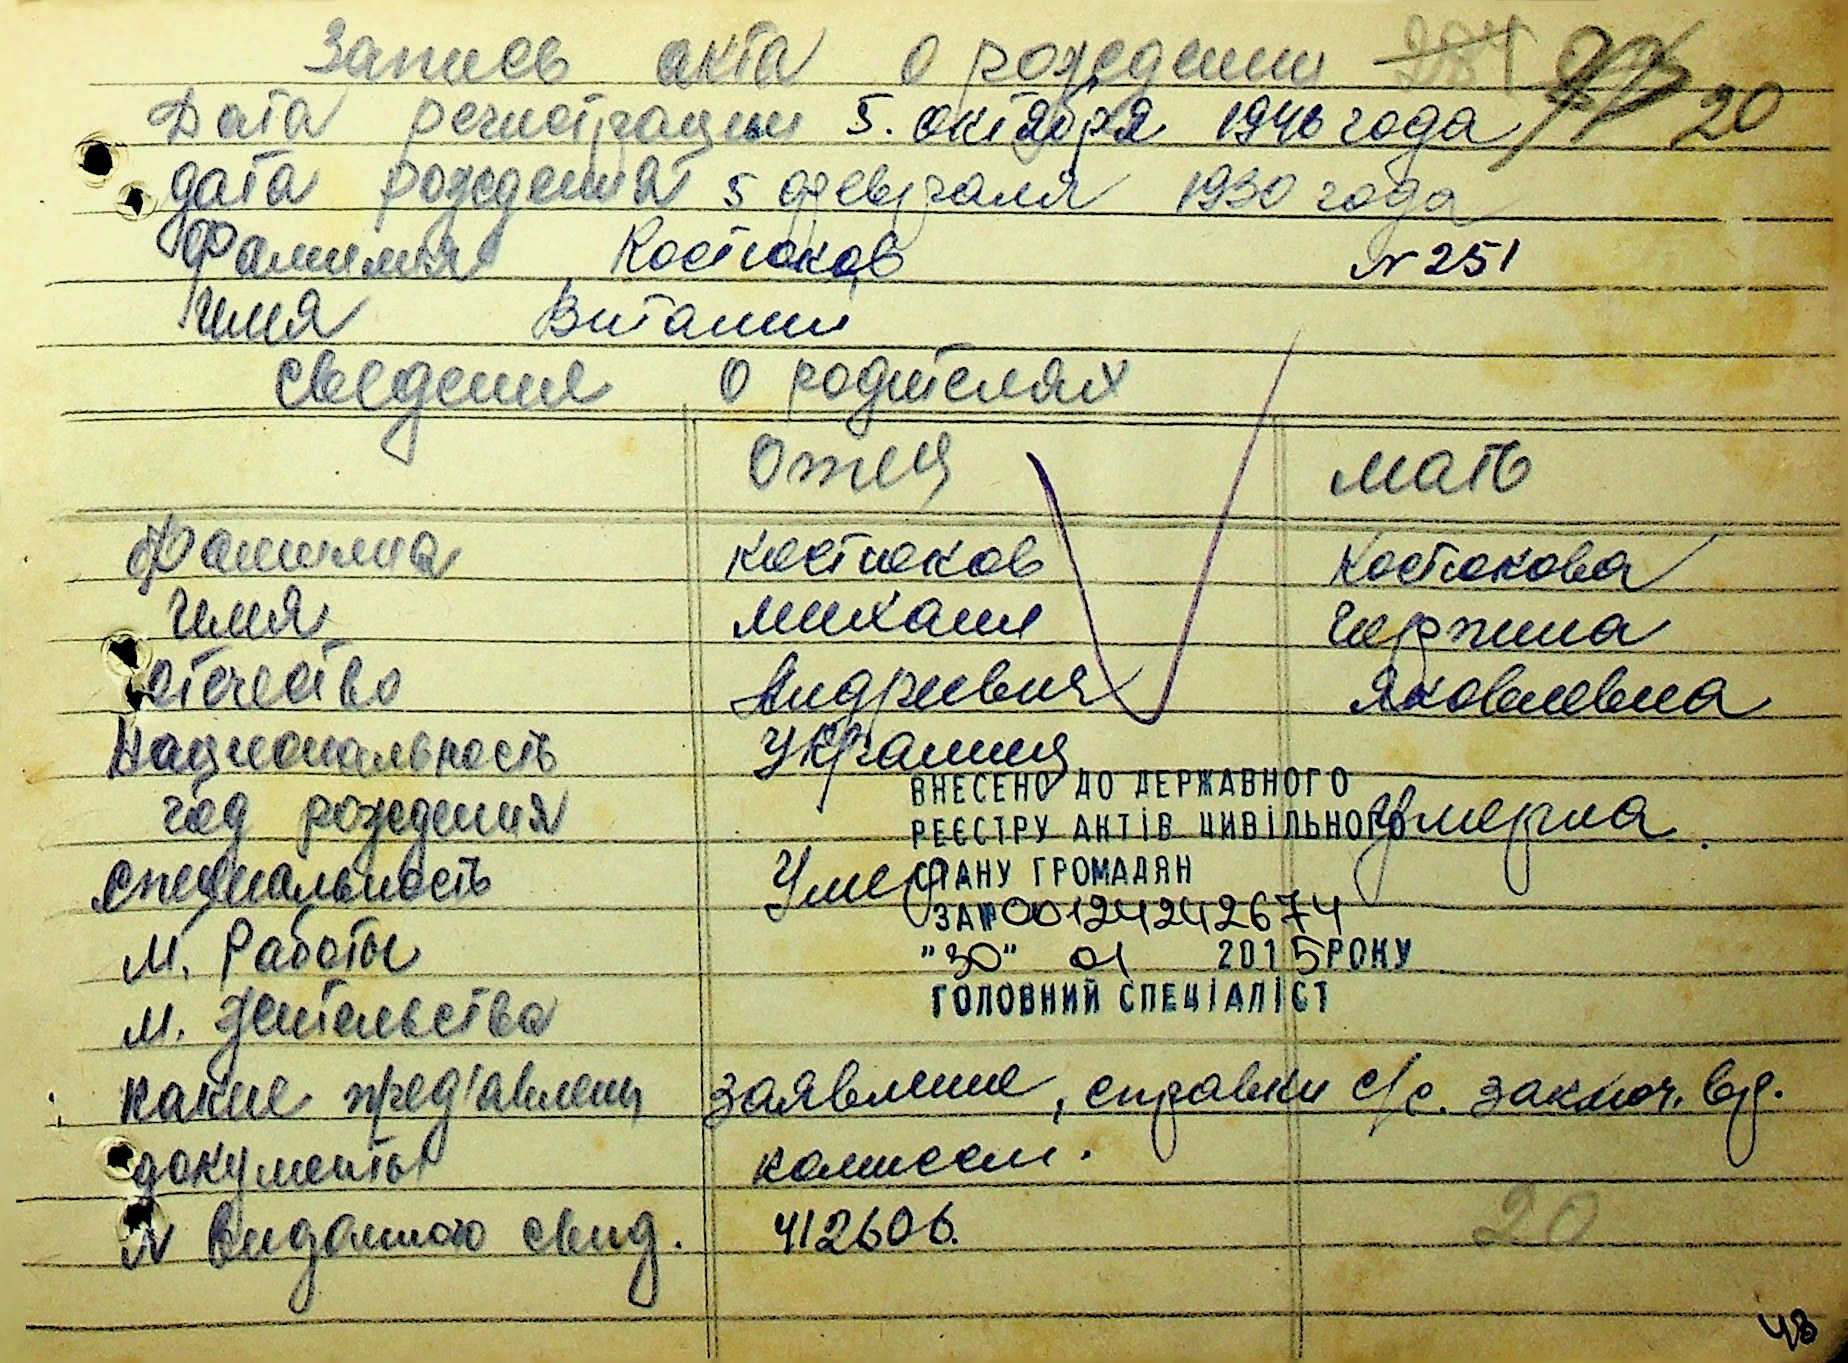 Запись акта о рождении 20
Дата регистрации 5. октября 1946 года
дата рождения 5 февраля 1930 года
Фамилия Костюков N 251
Имя Виталий
Сведения о родителях
Отец Мать
Фамилиа Костюков Костюкова
Имя Михаил
Отечество Яковлевна
Национальность Украинец
год рождения Умерла.
специальность Умер
М. Работы
М. Жительства
ВНЕСЕНО ДО ДЕРЖАВНОГО
РЕЄСТРУ АКТІВ ЦИВІЛЬНОГО
СТАНУ ГРОМАДЯН
ЗА № 00124242674
"30" 01 2015 РОКУ
ГОЛОВНИЙ СПЕЦІАЛІСТ
какие пред'авлены заявление, справки с/с. заключ. вр.
документы комиссии.
N Виданного свид. 412606. 20
48